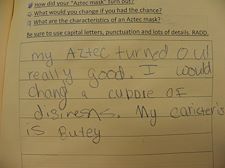 How did your "Aztec mask" turn out?
What would you change if you had the chance?
What are the characteristics of an Aztec mask?
Be sure to use capital letters, punctuation and lots of details. RADD.
my Aztec turned out
really good. I would
chang a cubple of
disiresns. My caristeris
is Butey